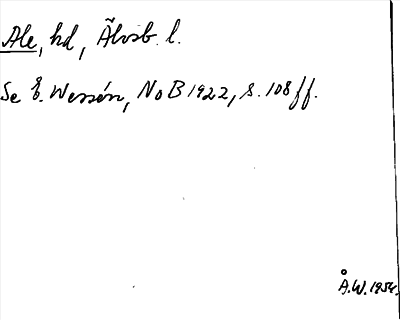 Ale, hd, Älvsb. l.
Se E. Wessén, NoB 1922, s. 108 ff.
Å.W. 1954.